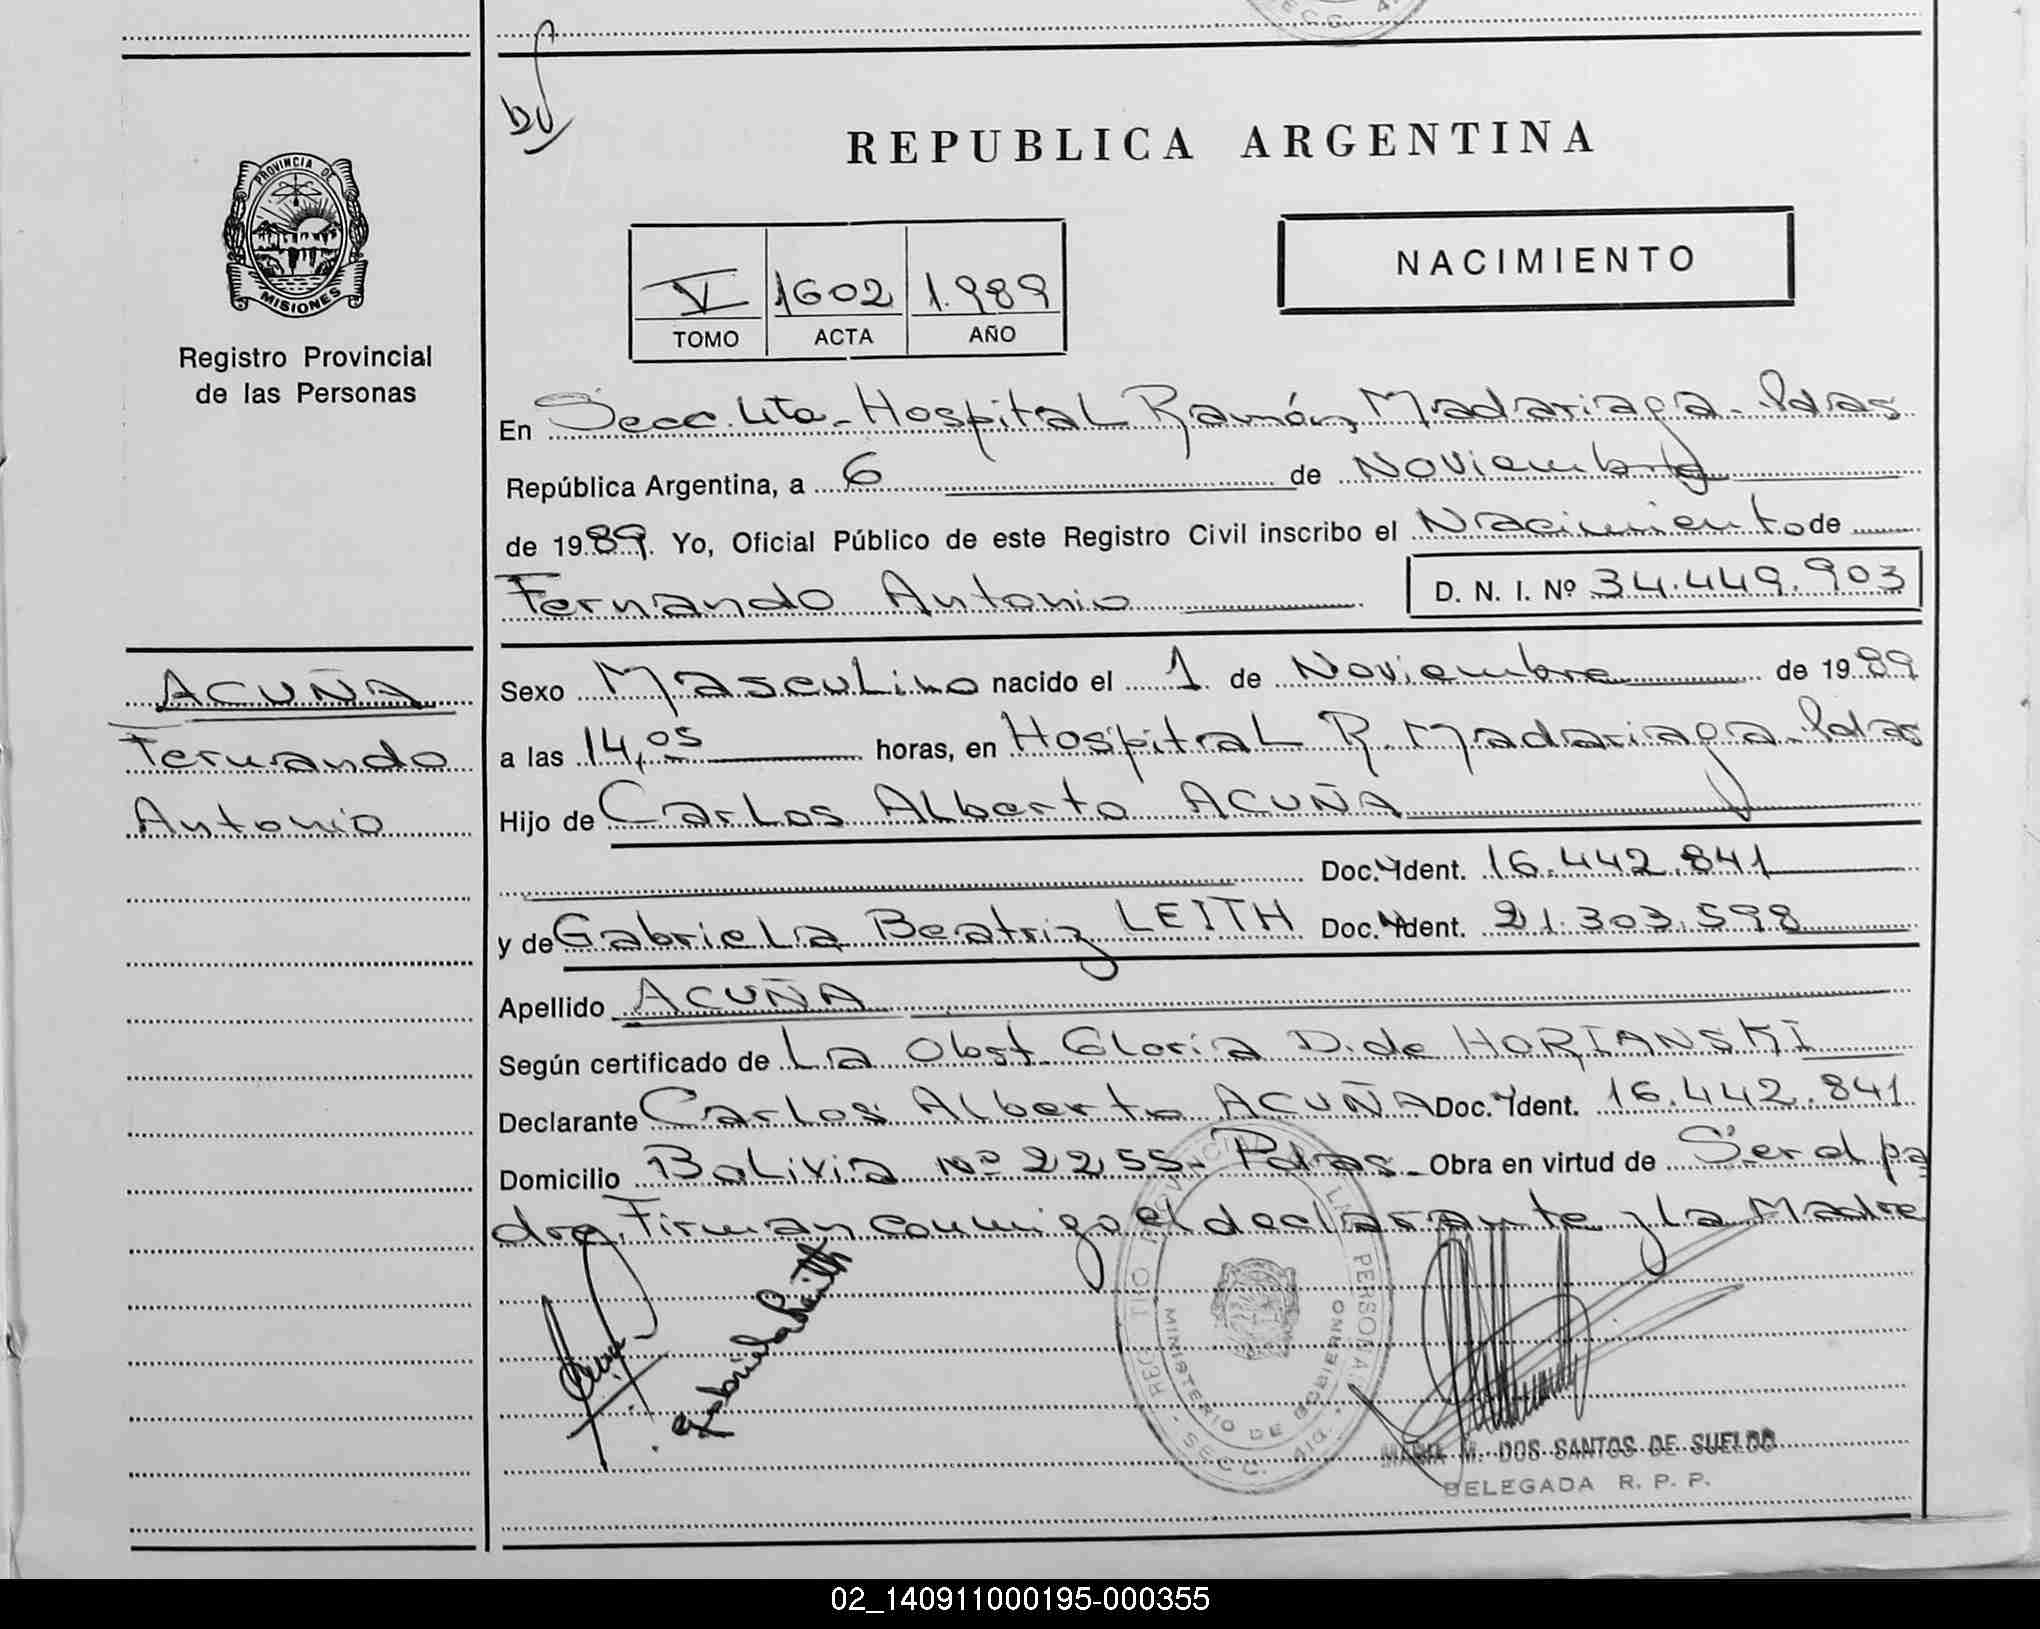 REPUBLICA ARGENTINA
PROVINCIA DE
MISIONES
Registro Provincial
de las Personas
NACIMIENTO
V 1602 1.989
TOMO ACTA AÑO
En Secc. 4ta - Hospital Ramón Madariaga - Pdas
República Argentina, a 6 de Noviembre
de 1989. Yo, Oficial Público de este Registro Civil inscribo el Nacimiento de
Fernando Antonio D. N. I. Nº 34.449.903
ACUÑA
Fernando
Antonio
Sexo Masculino nacido el 1 de Noviembre de 1989
a las 14,05 horas, en Hospital R. Madariaga - Pdas
Hijo de Carlos Alberto ACUÑA
Doc. Ydent. 16.442.841
y de Gabriela Beatriz LEITH Doc. Ydent. 21.303.598
Apellido ACUÑA
Según certificado de La Obst. Gloria D. de HORIANSKI
Declarante Carlos Alberto ACUÑA Doc. Ydent. 16.442.841
Domicilio Bolivia Nº 2255 - Pdas - Obra en virtud de Ser el pa
dre. Firman conmigo el declarante y la Madre
Gabriela Leith
MINISTERIO DE GOBIERNO
MARIA M. DOS SANTOS DE SUELDO
DELEGADA R. P. P.
02_140911000195-000355